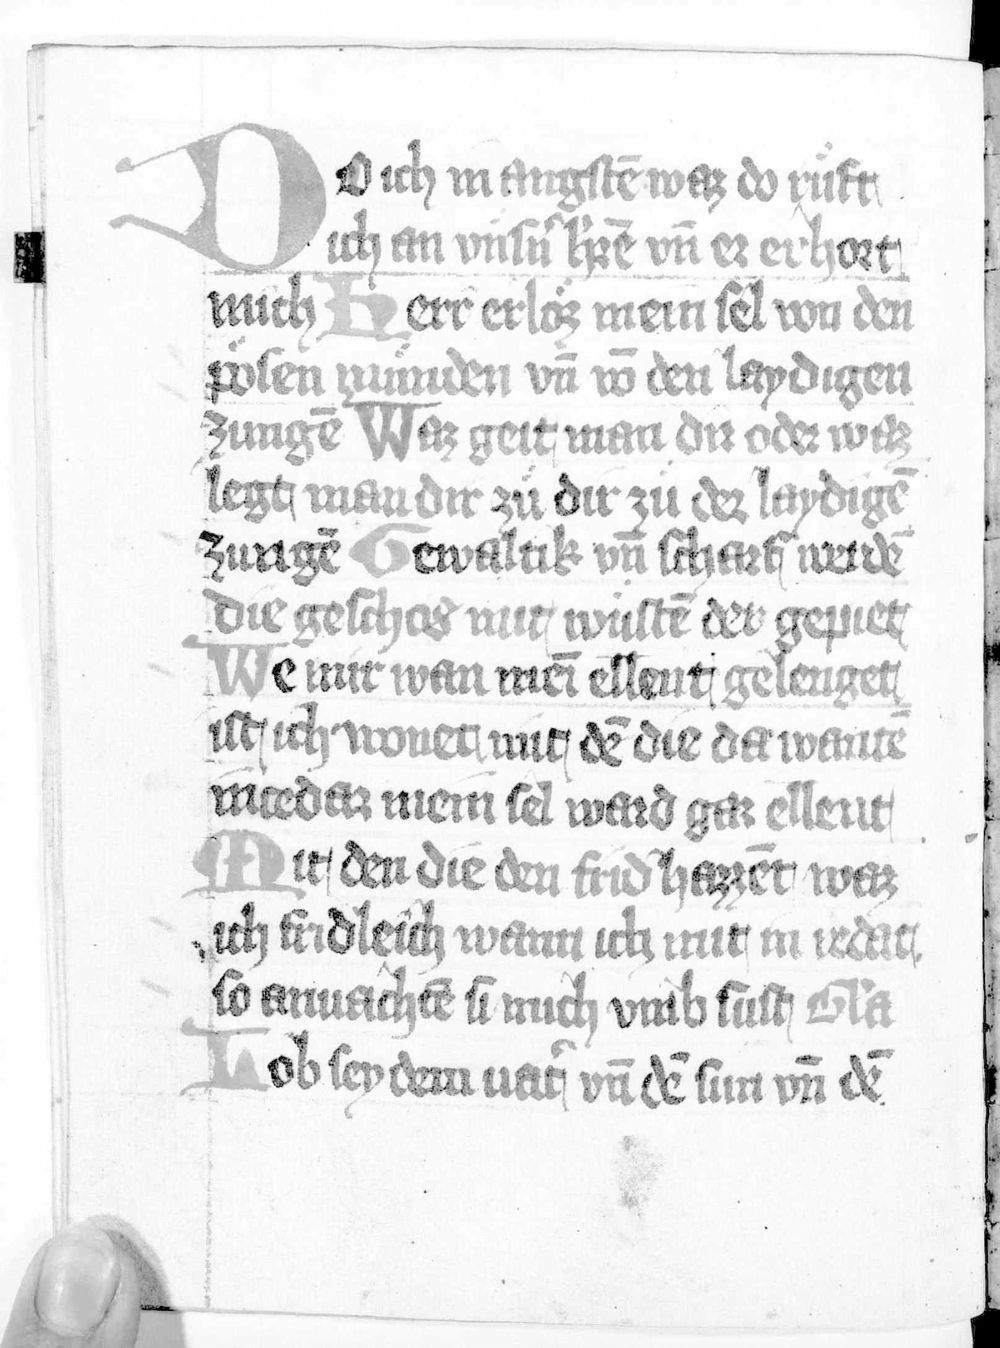 DO ich in angstē waz do rüft
ich an vnsn̄ hrē vn̄ er erhort
mich Herr erlöz mein sel von den
pösen münden vn̄ vō den laydigen
zungē Waz geit man dir oder waz
legt man dir zů dir zů der laydigē
zungē Gewaltik vn̄ scharf werdē
die geschos mit wüstē der gepiet
We mir wan mei̅ ellent gelenget
ist ich wonet mit dē die da wantē
in cedar mein sel ward gar ellent
Mit den die den frid hazzēt waz
ich fridleich wann ich mit in redat
so anuachtē si mich vmb sust Gla
Lob sey dem uat͛ vn̄ dē sun vn̄ dē